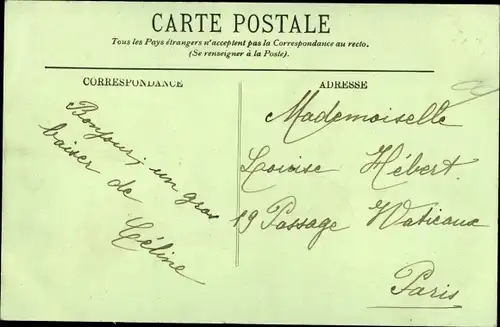 CARTE POSTALE
Tous les Pays étrangers n'acceptent pas la Correspondance au recto.
(Se renseigner à la Poste).
CORRESPONDANCE
Bonjour, un gros
baiser de
Céline
ADRESSE
Mademoiselle
Louise Hébert.
19 Passage
Paris